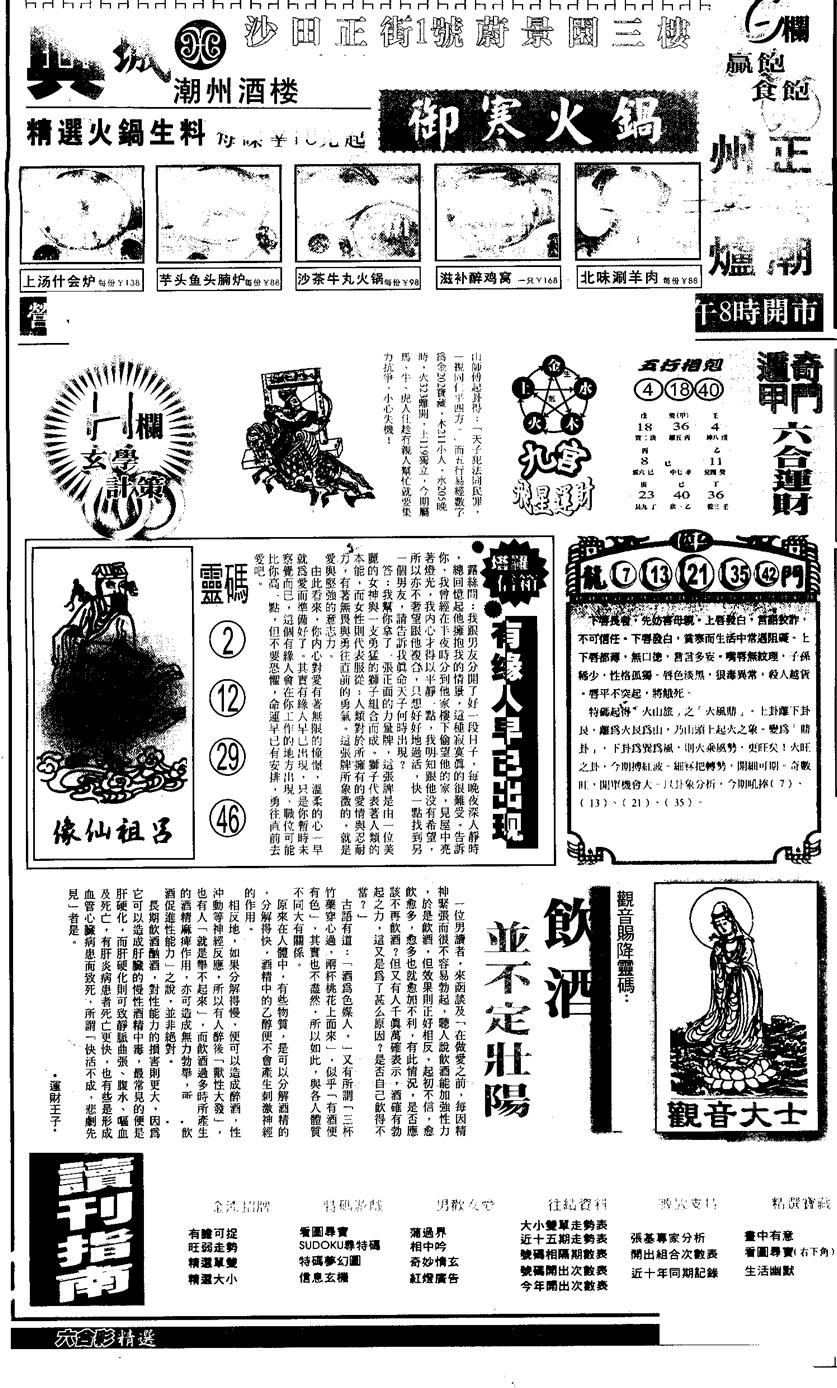 沙田正街1號蔚景園三樓
興城
潮州酒楼
精選火鍋生料
御寒火鍋
欄
贏飽
食飽
正
州
潮
爐
午8時開市
上汤什会炉 每份￥138
芋头鱼头腩炉 每份￥88
沙茶牛丸火锅 每份￥98
滋补醉鸡窝 一只￥168
北味涮羊肉 每份￥88
營
奇門遁甲
六合運財
五行相剋
4 18 40
18 36 4
8 11
23 40 36
金
水
木
火
土
九宮
飛星運財
山師傅起卦得：「天子犯法同民罪，
一視同仁平四方」，而五行易經數了
為金202寶藏，木211小人，水205晚
時，火323難開，土119獨立，今期屬
馬、牛、虎人仕趁有親人幫忙就要集
力抗爭，小心失機！
H欄
玄學
計策
龍 7 13 21 35 42 門
下唇長者，先妨害母親。上唇發白，言語狡詐，
不可信任。下唇發白，貧寒而生活中常遇阻礙。上
下唇都薄，無口德，言言多妄。嘴唇無紋理，子孫
稀少，性格孤獨。唇色淡黑，狠毒異常，殺人越貨
。唇平不突起，將餓死。
特碼起得“火山旅”之「火風鼎」。上卦離下卦
艮，離為火艮為山，乃山頭上起火之象。變為「鼎
卦」，下卦為巽為風，則火乘風勢，更旺矣！火旺
之卦，今期搏紅波。
旺，開單機會大。只卦象分析，今期吼捧（7）、
（13）、（21）、（35）。
塔羅
信箱
有緣人早已出現
露絲問：我跟男友分開了好一段日子，每晚夜深人靜時
，總回憶起他擁抱我的情景，這種寂寞真的很難受。告訴
你，我曾經在半夜時分到他家樓下偷望他的家，見屋中亮
著燈光，我內心才得以平靜一點，我明知跟他沒有希望，
所以亦不奢望跟他複合，只想好好地過活，快一點找到另
一個男友，請告訴我真命天子何時出現？
答：我幫你拿了一張正面的力量牌，這張牌是由一位美
麗的女神與一支勇猛的獅子組合而成。獅子代表著人類的
本能，而女性則代表服從；人類對於所擁有的愛情與忍耐
力，有著無畏與勇往直前的勇氣。這張牌所象徵的，就是
愛與堅強的意志力。
由此看來，你內心對愛有著無限的憧憬，溫柔的心一早
就為愛而準備好了。其實有緣人早已出現，只是你暫時未
察覺而已，這個有緣人會在你工作的地方出現，職位可能
比你高一點，但不要恐懼，命運早已有安排，勇往直前去
愛吧。
靈碼
2
12
29
46
呂祖仙像
觀音賜降靈碼：
觀音大士
飲酒
並不定壯陽
一位男讀者，來函談及「在做愛之前，每因精
神緊張而很不容易勃起，聽人說飲酒能加強性力
，於是飲酒，但效果則正好相反，起初不信，愈
飲愈多，愈多也就愈加不利，有此情況，是否應
該不再飲酒？但又有人千真萬確表示，酒確有勃
起之力，這又是為了甚么原因？是否自己飲得不
當？」
古語有道：「酒為色媒人。」又有所謂「三杯
竹藥穿心過，兩杯桃花上面來」，似乎「有酒便
有色」，其實也不盡然，所以如此，與各人體質
不同大有關係。
原來在人體中，有些物質，是可以分解酒精的
，分解得快，酒精中的乙醇便不會產生刺激神經
的作用。
相反地，如果分解得慢，便可以造成醉酒，性
沖動等神經反應，所以有人醉後「獸性大發」，
也有人「就是舉不起來」，而飲酒過多時所產生
的酒精麻痺作用，亦可造成無力勃舉，所
酒促進性能力」之說，並非絕對。
長期飲酒酗酒，對性能力的損害則更大，因為
它可以造成肝臟的慢性酒精中毒，最常見的便是
肝硬化，而肝硬化則可致靜脈曲張、腹水、嘔血
及死亡，有肝炎病患者死亡更快，也有些是形成
血管心臟病患而致死，所謂「快活不成，悲劇先
見」者是。
•運財王子•
讀刊指南
金漆招牌
有蹤可捉
旺弱走勢
精選單雙
精選大小
特碼遊戲
看圖尋寶
SUDOKU尋特碼
特碼夢幻圖
信息玄機
男歡女愛
蒲過界
相中吟
奇妙情玄
紅燈廣告
往績資料
大小雙單走勢表
近十五期走勢表
號碼相隔期數表
號碼開出次數表
今年開出次數表
張基專家分析
開出組合次數表
近十年同期記錄
精選寶藏
畫中有意
看圖尋寶（右下角）
生活幽默
六合彩精選